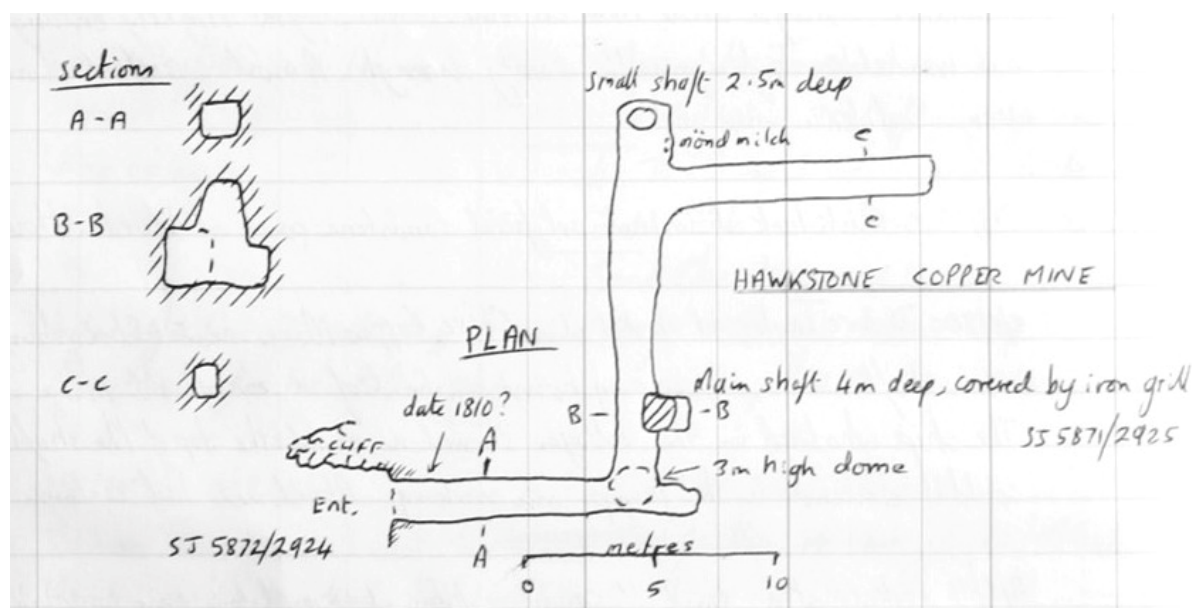 sections
A-A
B-B
C-C
small shaft 2.5m deep
mönd milch
c
c
HAWKSTONE COPPER MINE
PLAN
Main shaft 4m deep, covered by iron grill
SJ 5871/2925
B
-B
date 1810?
A
CLIFF
3m high dome
Ent.
SJ 5872/2924
A
metres
0
5
10